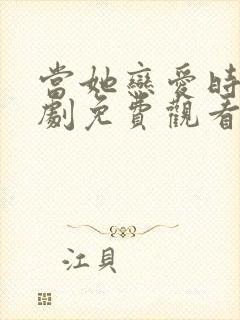 當她戀愛時
劇免費觀看
江貝